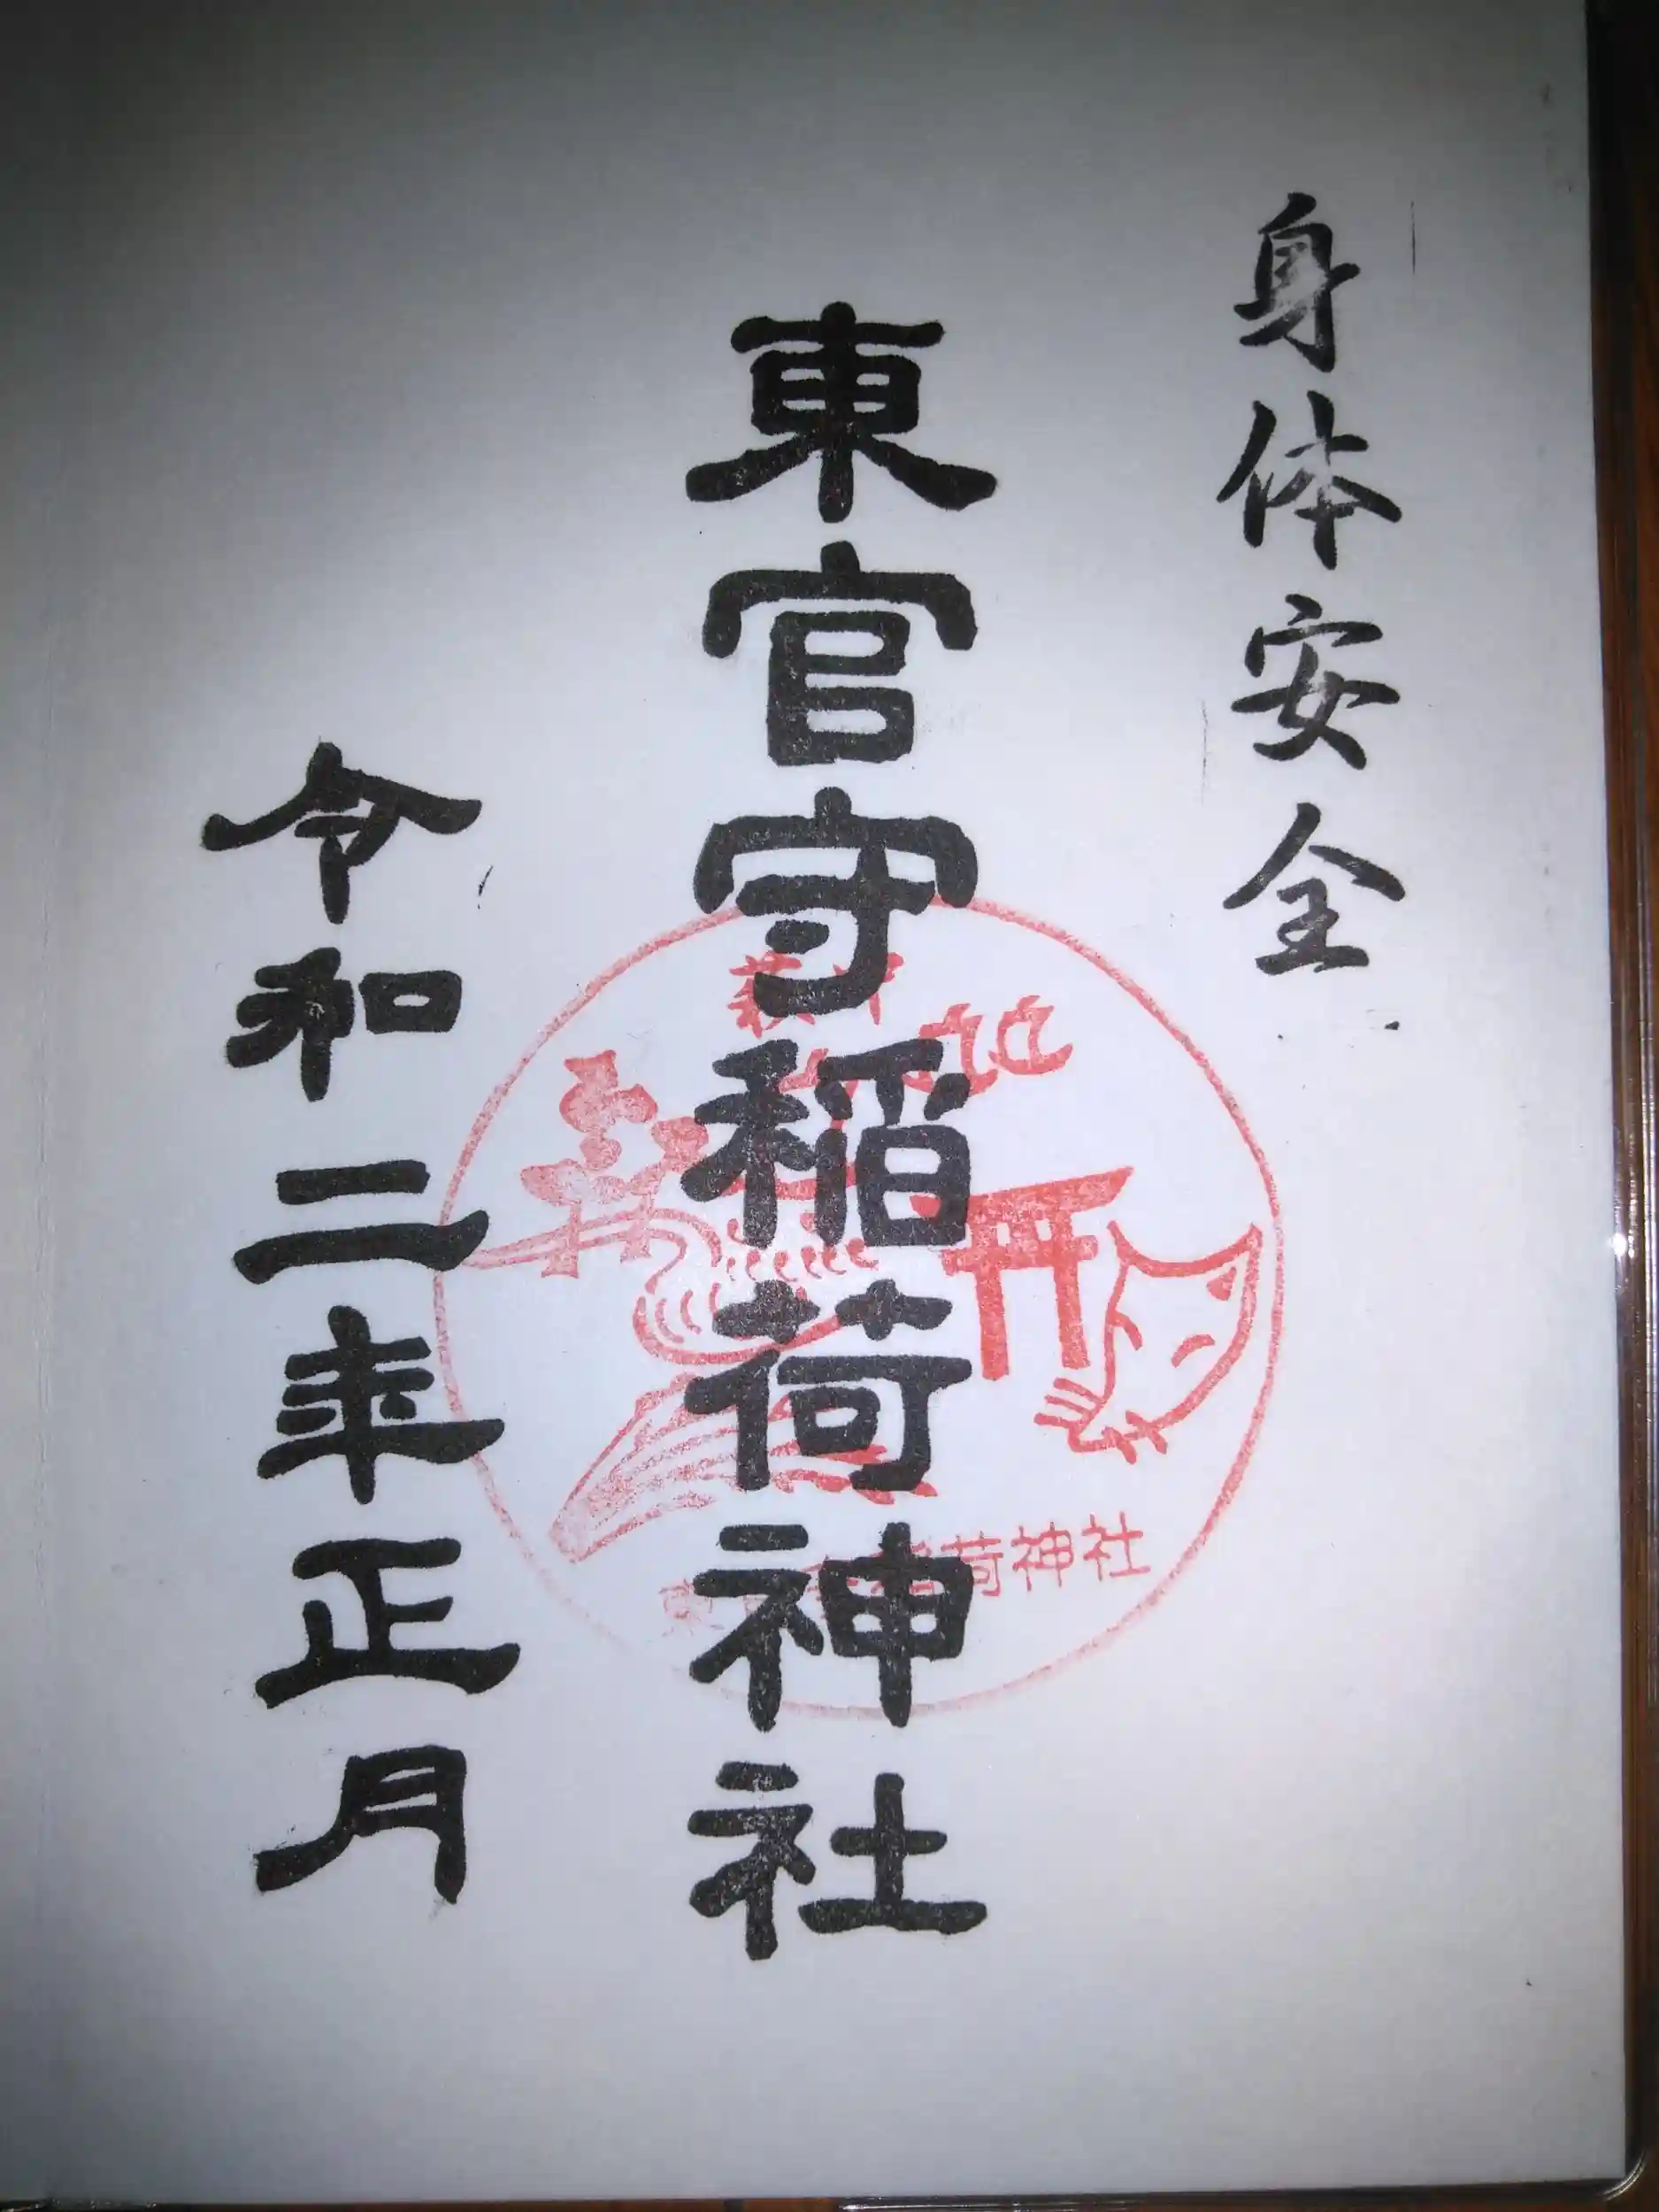 身体安全
東官守稲荷神社
令和二年正月
稲荷神社